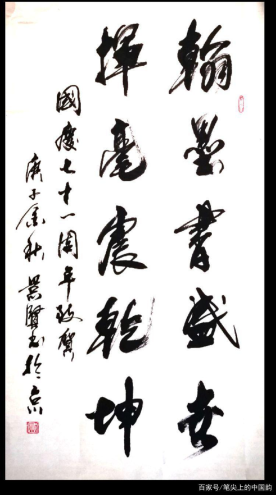 翰墨書盛世
揮毫震乾坤
國慶七十一周年致賀
庚子金秋 景賢書於京
百家号/笔尖上的中国韵